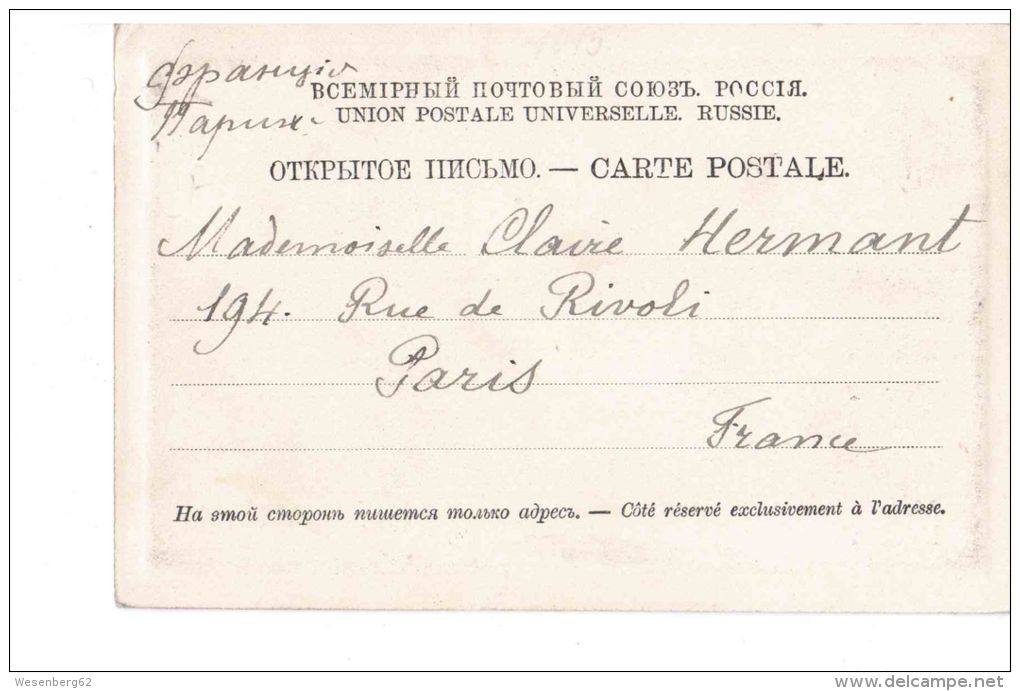 Франція
ВСЕМІРНЫЙ ПОЧТОВЫЙ СОЮЗЪ. РОССІЯ.
Парижъ
UNION POSTALE UNIVERSELLE. RUSSIE.
ОТКРЫТОЕ ПИСЬМО. — CARTE POSTALE.
Mademoiselle Claire Hermant
194. Rue de Rivoli
Paris
France
На этой сторонѣ пишется только адресъ. — Côté réservé exclusivement à l'adresse.
Wesenberg62
delcampe.net